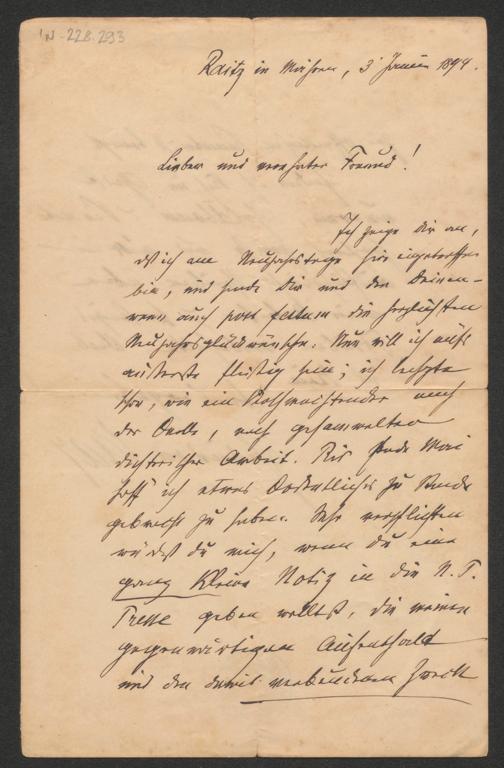 IN-228.293
Raitz in Mähren, 3 Jänner 1894.
Lieber und verehrter Freund!
Ich zeige dir an,
daß ich am Neujahrstage hier eingetroffen
bin, und sende dir und den Deinen –
wenn auch post festum die herzlichsten
Neujahrsglückwünsche. Nun will ich aufs
äußerste fleißig sein; ich lechzte
schon, wie ein Nothmaistender nach
der Quelle, nach gesammelter
dichterischer Arbeit. Bis Ende Mai
hoff' ich etwas Ordentliches zu Stande
gebracht zu haben. Sehr verpflichten
würdest du mich, wenn du eine
ganz kleine Notiz in die N. F.
Presse geben wolltest, die meinen
gegenwärtigen Aufenthalt
und den damit verbundenen Zweck